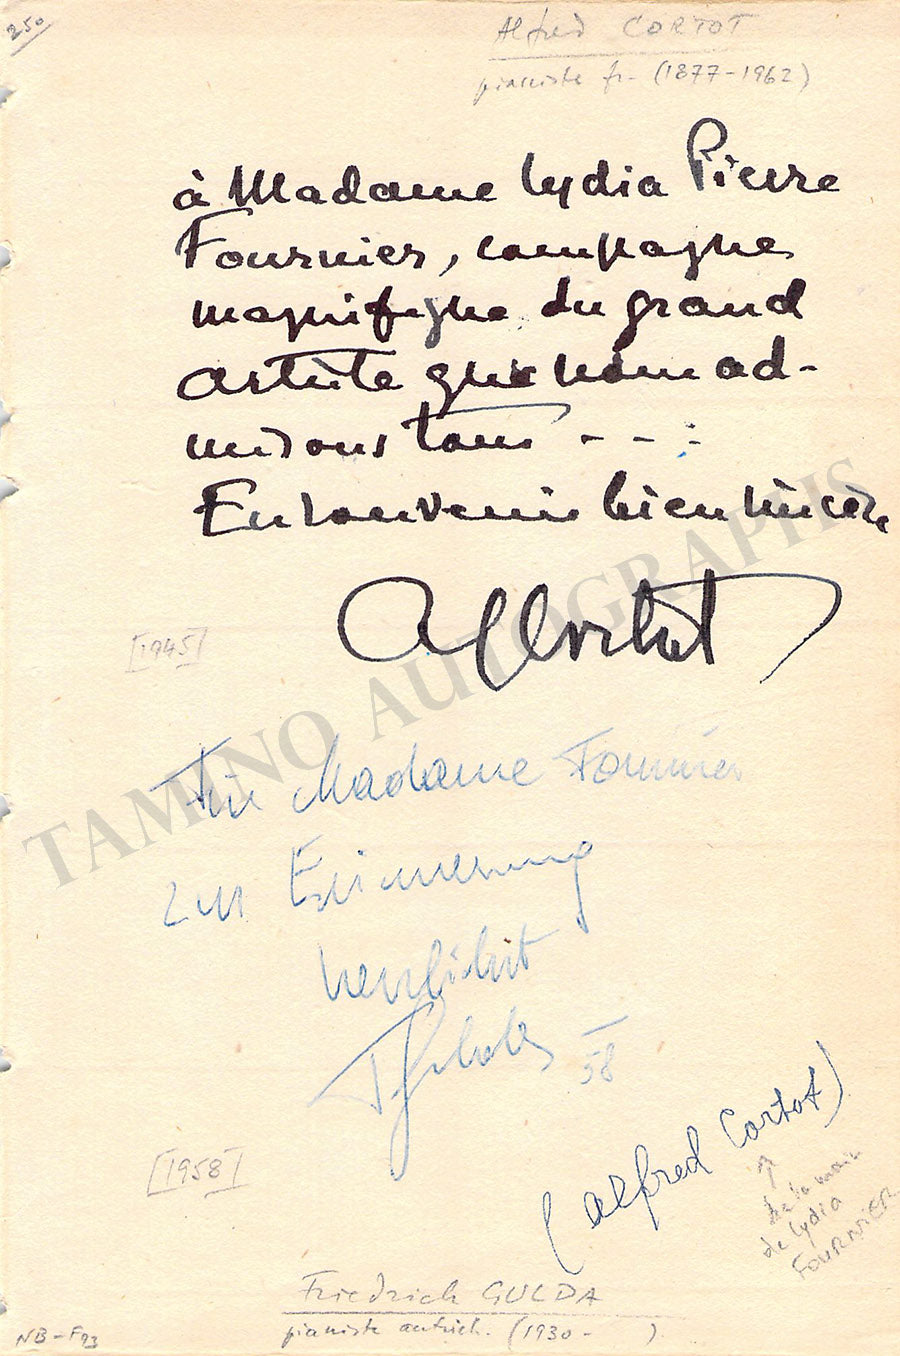 250
Alfred CORTOT
pianiste fr. (1877-1962)
à Madame Lydia Pierre
Fournier, compagne
magnifique du grand
artiste que nous ad-
mirons tous - - -
En souvenir bien sincère
A Cortot
[1945]
TAMINO AUTOGRAPHS
Für Madame Fournier
zur Erinnerung
herzlichst
58
[1958]
(Alfred Cortot)
de la main
de Lydia
FOURNIER
Friedrich GULDA
pianiste autrich. (1930- ).
NB-F93